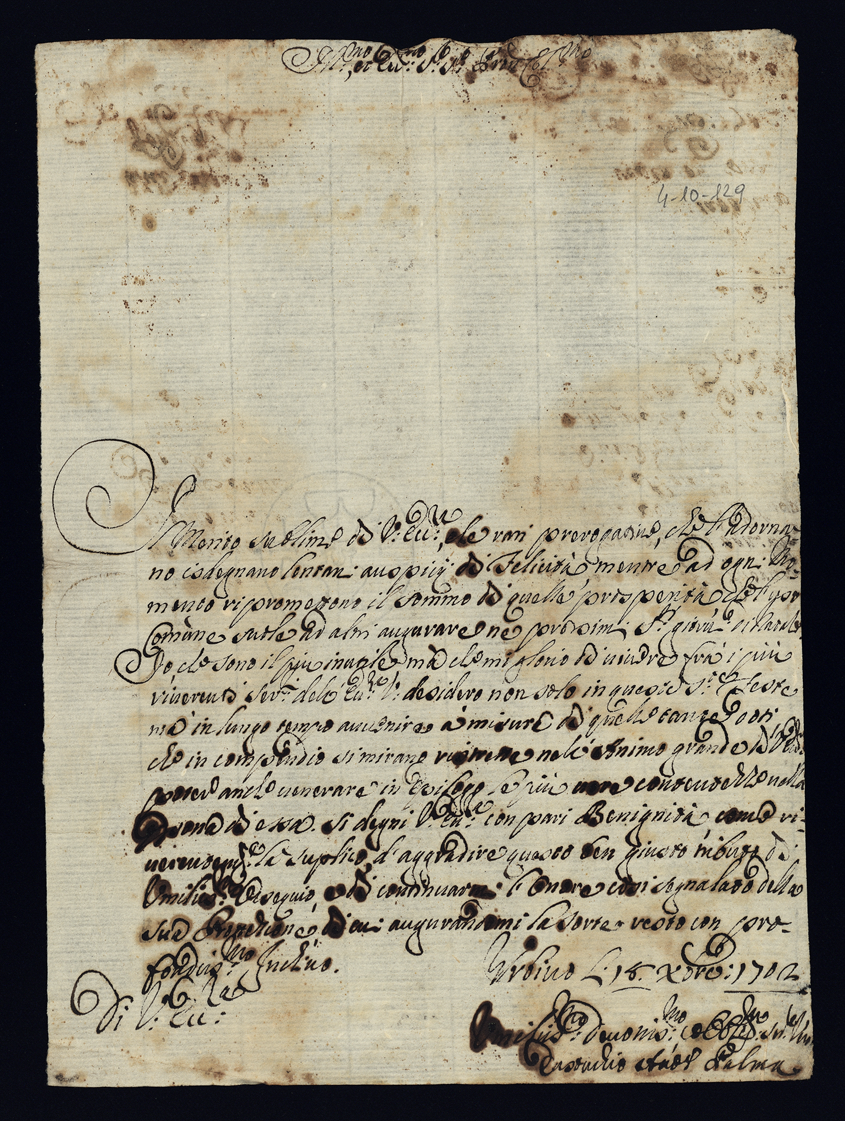 Ill.mo et Ecc.mo S.r
4-10-129
Il Merito sublime di V. Ecc.za, e le rari prerogative, che l'adorna-
no isdegnano lontani auspicij di Felicità, mentre ad ogni Mo-
mento ripromettono il sommo di quelle prosperità, che l'uso
Comune suole ad altri augurare ne prossimi S.ti giorni
Io che sono il più inutile mà che mi glorio di vivere frà i più
riverenti Ser.ri dell'Ecc.za V. desidero non solo in queste S.te Feste
mà in lungo tempo avvenire à misura di quelle tante doti
che in compendio si mirano nell'Animo grande di
poter anche venerare in Epilogo le più vere contentezze nella
Persona di essa. Si degni V. Ecc.za con pari Benignità come ri-
la suplico d'aggradire questo ben giusto tributo di
Ossequio, e di continuarmi l'onore così segnalato della
sua di cui augurandomi la sorte resto con pro-
fondiss.mo Inchino.
Urbino li 18 Xbre 1702
Di V. Ecc.za
Umiliss.mo devotis.mo et Obl.mo Ser.re
Palma